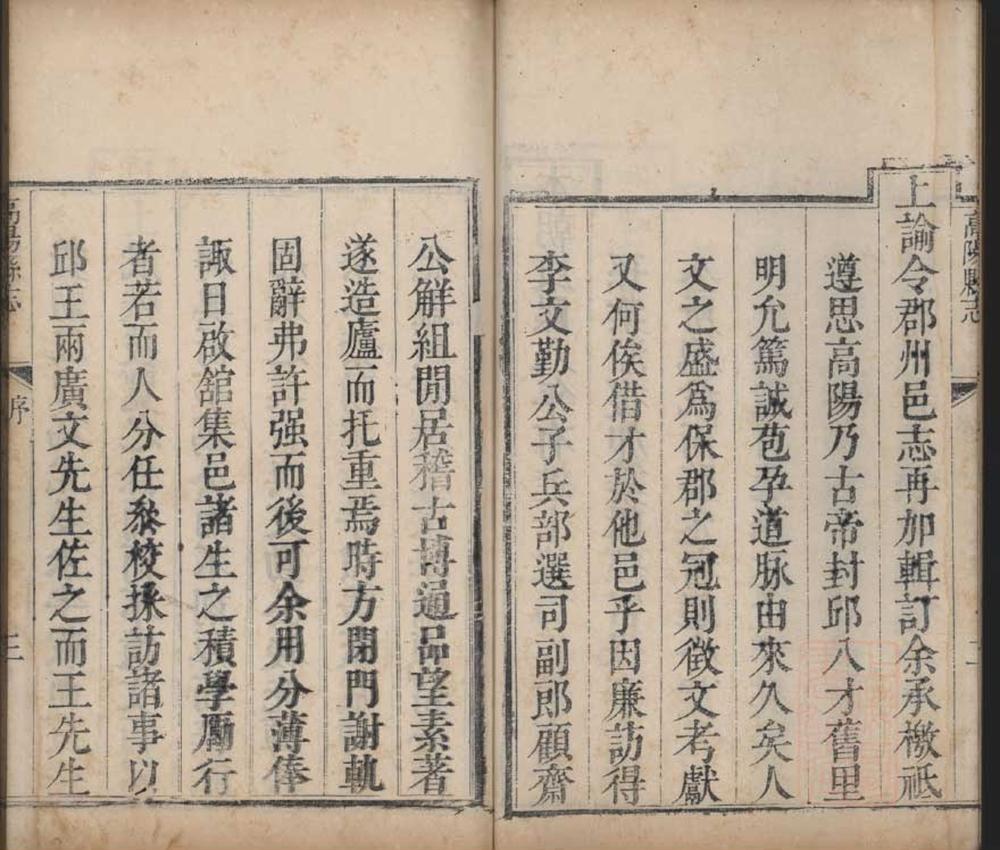 高陽縣志
二
上諭令郡州邑志再加輯訂余承檄祗
遵思高陽乃古帝封邱八才舊里
明允篤誠苞孕道脉由來久矣人
文之盛爲保郡之冠則徵文考獻
又何俟借才於他邑乎因廉訪得
李文勤公子兵部選司副郎顧齋
公解組閒居稽古博通品望素著
遂造廬而托重焉時方閉門謝軌
固辭弗許强而後可余用分薄俸
諏日啟舘集邑諸生之積學勵行
者若而人分任叅校採訪諸事以
邱王兩廣文先生佐之而王先生
高陽縣志
序
二